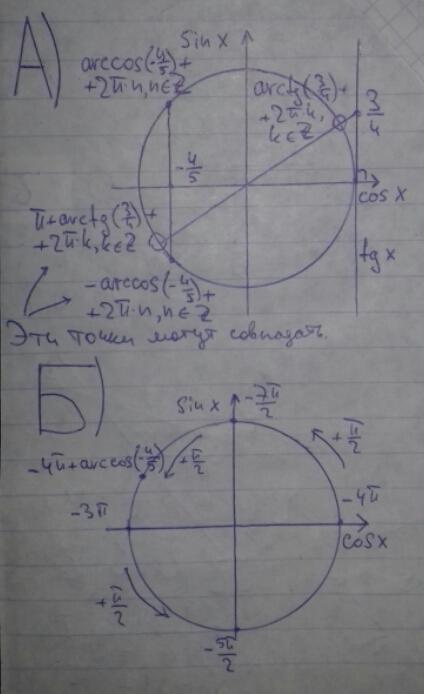 А)
Sin x
arccos(-4/5)+
+2π·n, n∈Z
arctg(3/4)+
+2π·k,
k∈Z
3/4
-4/5
cos x
π+arctg(3/4)+
+2π·k, k∈Z
tg x
-arccos(-4/5)+
+2π·n, n∈Z
Эти точки могут совпадать.
Б)
Sin x
-7π/2
+π/2
+π/2
-4π+arccos(-4/5)
-4π
-3π
cos x
+π/2
-5π/2